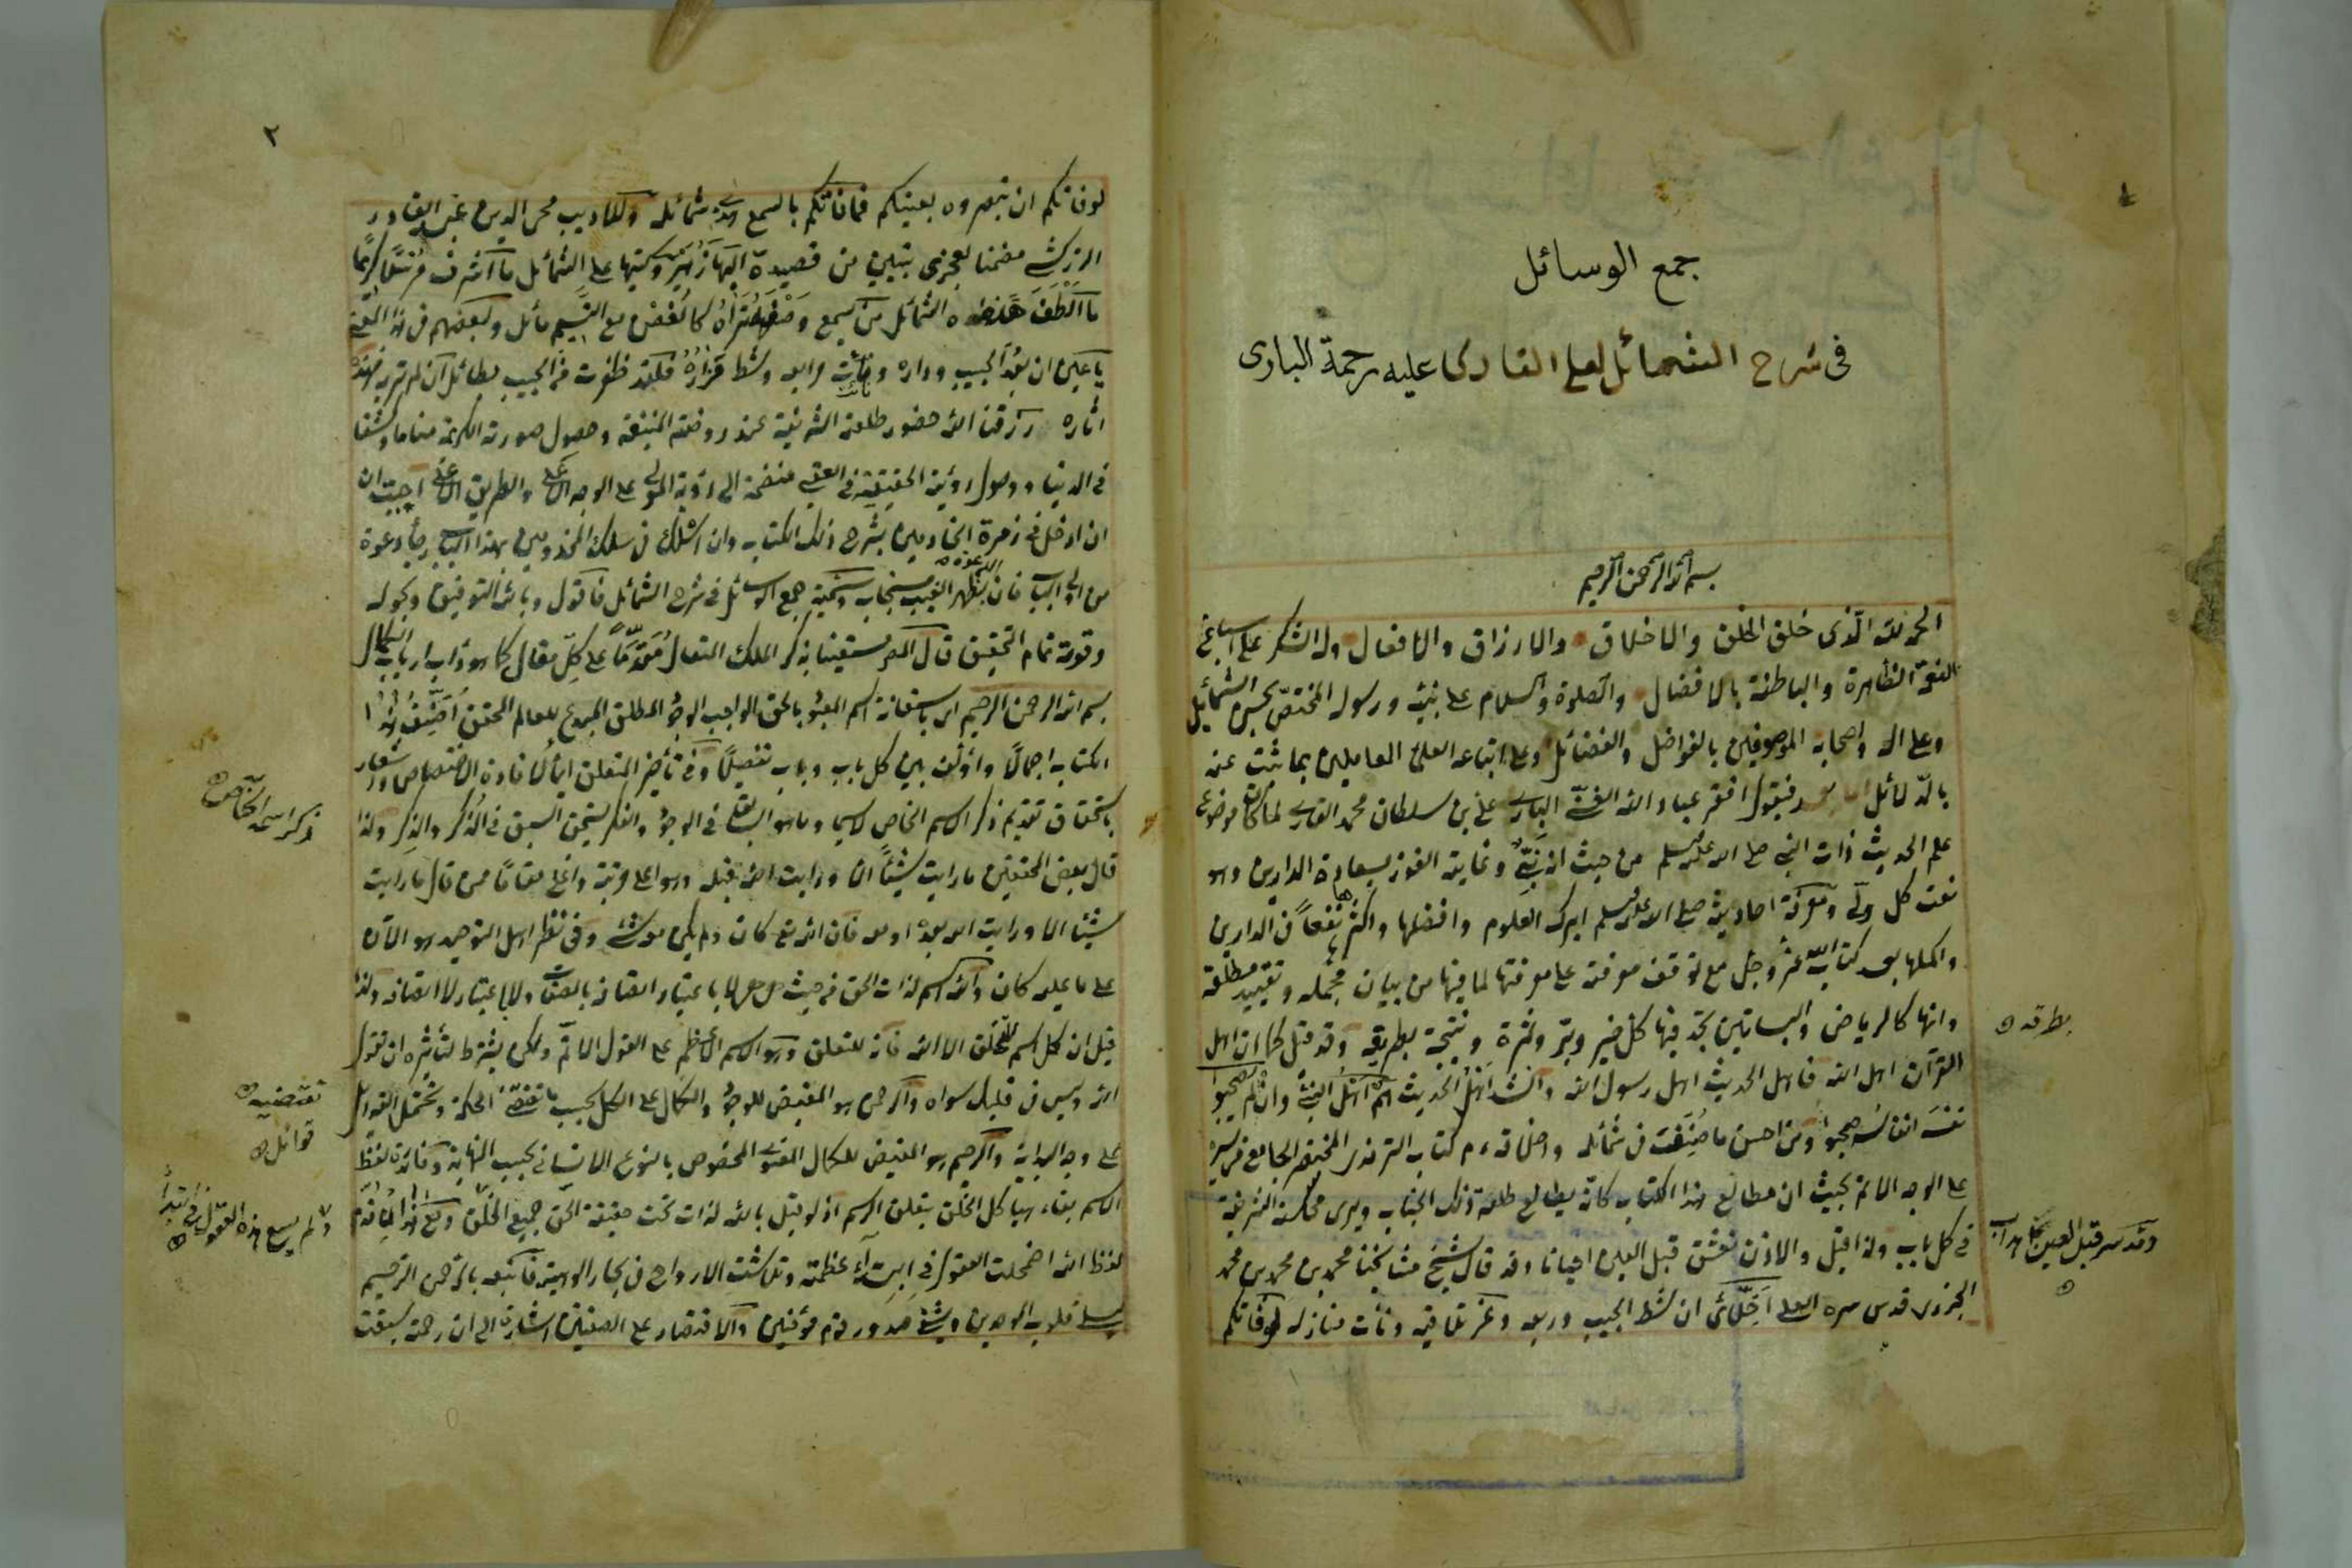 جمع الوسائل
فى شرح الشمائل لعلى القارى عليه رحمة البارى
بسم الله الرحمن الرحيم
الحمد لله الذى خلق الخلق والاخلاق والارزاق والافعال وله الشكر على اسباغ
النعمة الظاهرة والباطنة بالافضال والصلوة والسلام على نبيه ورسوله المختص بحسن الشمائل
وعلى اله واصحابه الموصوفين بالفواضل والفضائل وعلى اتباعه العلماء العاملين بما ثبت عنه
بالدلائل اما بعد فيقول افقر عباد الله الغنى البارى على بن سلطان محمد القارى لما كان موضوع
علم الحديث ذات النبى صلى الله عليه وسلم من حيث انه نبى وغايته الفوز بسعادة الدارين وهو
نعت كل ولى ومعرفة احاديثه صلى الله عليه وسلم ابرك العلوم وافضلها واكثرها نفعا فى الدارين
واكملها بعد كتاب الله عز وجل مع توقف معرفته على معرفتها لما فيها من بيان مجمله وتقييد مطلقه
وانها كالرياض والبساتين تجد فيها كل خير وبر وثمرة ونتيجة بطريقه وقد قيل كما ان اهل
بطرقه
القرآن اهل الله فاهل الحديث اهل رسول الله وانشد اهل الحديث هم اهل النبى وان لم يصحبوا
نفسه انفاسه صحبوا ومن احسن ما صنف فى شمائله واخلاقه كتاب الترمذى المختصر الجامع فى سيره
على الوجه الاتم بحيث ان مطالع هذا الكتاب كانه يطالع طلعة ذلك الجناب ويرى محاسنه الشريفة
فى كل باب ولذا قيل والاذن تعشق قبل العين احيانا وقد قال شيخ مشايخنا محمد بن محمد بن محمد
الجزرى قدس سره العلى اخلائى ان شط الحبيب وربعه وعز تلاقيه ونأت منازله لو فاتكم
٢
لو فاتكم ان تبصروه بعينكم فما فاتكم بالسمع هذى شمائله وللاديب محى الدين عبد القادر
الزركشى مضمنا لعجزى بيتين من قصيدة البها زهير وكتبها على الشمائل يا اشرف مرسلا كريما
ما الطف هذه الشمائل من يسمع وصفها تراه كالغصن مع النسيم مائل ولبعضهم فى هذا المعنى
يا عين ان بعد الحبيب وداره ونأت مرابعه وشط مزاره فلقد ظفرت من الحبيب بطائل ان لم تريه فهذه
اثاره رزقنا الله حضور طلعته الشريفة عند روضته المنيفة وحصول صورته الكريمة مناما وكشفا
فى الدنيا ووصول رؤيته الحقيقية فى العقبى منضمة الى رؤية المولى على الوجه الاعلى والطريق الاغلى احببت ان
ان ادخل فى زمرة الخادمين بشرح ذلك الكتاب وان اسلك فى سلك المخدومين بهذا الباب رجاء دعوة
من اولى الالباب فان بظهر الغيب مستجاب وسميته جمع الوسائل فى شرح الشمائل فاقول وبالله التوفيق وبحوله
وقوته تمام التحقيق قال المص مستعينا بذكر الملك المتعال مقدما على كل مقال كما هو داب ارباب الكمال
بسم الله الرحمن الرحيم اى باستعانة اسم المعبود بالحق الواجب الوجود المطلق المبدع للعالم المحقق اصنف هذا
الكتاب اجمالا واؤلف بين كل باب وباب تفصيلا وفى تأخير المتعلق ايماء لافادة الاختصاص واشعار
باستحقاق تقديم ذكر الاسم الخاص لاسيما وما هو السابق فى الوجود والفكر يستحق السبق فى الذكر والذكر ولذا
ذكر اسمه الخاص
قال بعض المحققين ما رايت شيئا الا ورايت الله قبله وهو اعلى مرتبة واغلى مقاما من قال ما رايت
شيئا الا ورايت الله بعده او معه فان الله تع كان ولم يكن معه شئ وفى نظر اهل التوحيد هو الآن
على ما عليه كان والله اسم لذات الحق من حيث هى هى لا باعتبار اتصافه بالصفات ولا باعتبار لا اتصافه ولذا
قيل ان كل اسم للتخلق الا الله فانه للتعلق وهو الاسم الاعظم على القول الاتم ولكن بشرط لتأثيره ان تقول
الله وليس فى قلبك سواه والرحمن هو المفيض للوجود والكمال على الكل بحسب ما تقتضيه الحكمة وتحتمل القوابل
تقتضيه
قوابل
على وجه البداية والرحيم هو المفيض للكمال المعنوى المخصوص بالنوع الانسانى بحسب النهاية وفائدة لفظ
الاسم بقاء هياكل الخلق بتعلق الرسم اذ لو قيل بالله لذابت تحت حقيقة الحق جميع الخلق
لفظ الله اضمحلت العقول فى ابتداء عظمته وتلاشت الارواح فى بحار الوهيته فاتبعه بالرحمن الرحيم
ليسلى قلوب الموحدين ويشفى صدور قوم مؤمنين والاقتصار على الصفتين اشارة الى ان رحمته سبقت